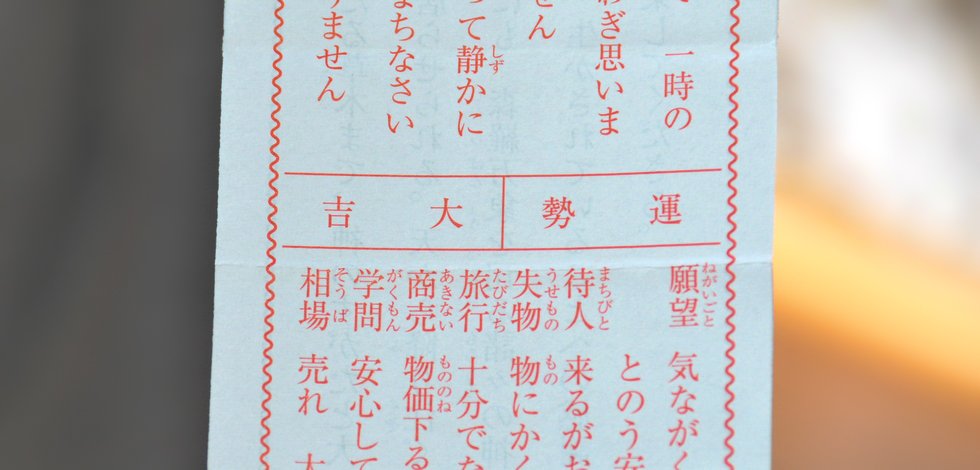 一時の
わぎ思いま
せん
って静かに
まちなさい
りません
運勢 大吉
願望 気ながく
とのう安
待人 来るがお
失物 物にかく
旅行 十分でな
商売 物価下る
学問 安心して
相場 売れ 大